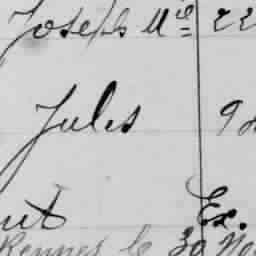 Joseph M^ie 22
Jules 9
ut Ex.
Rennes le 30 No